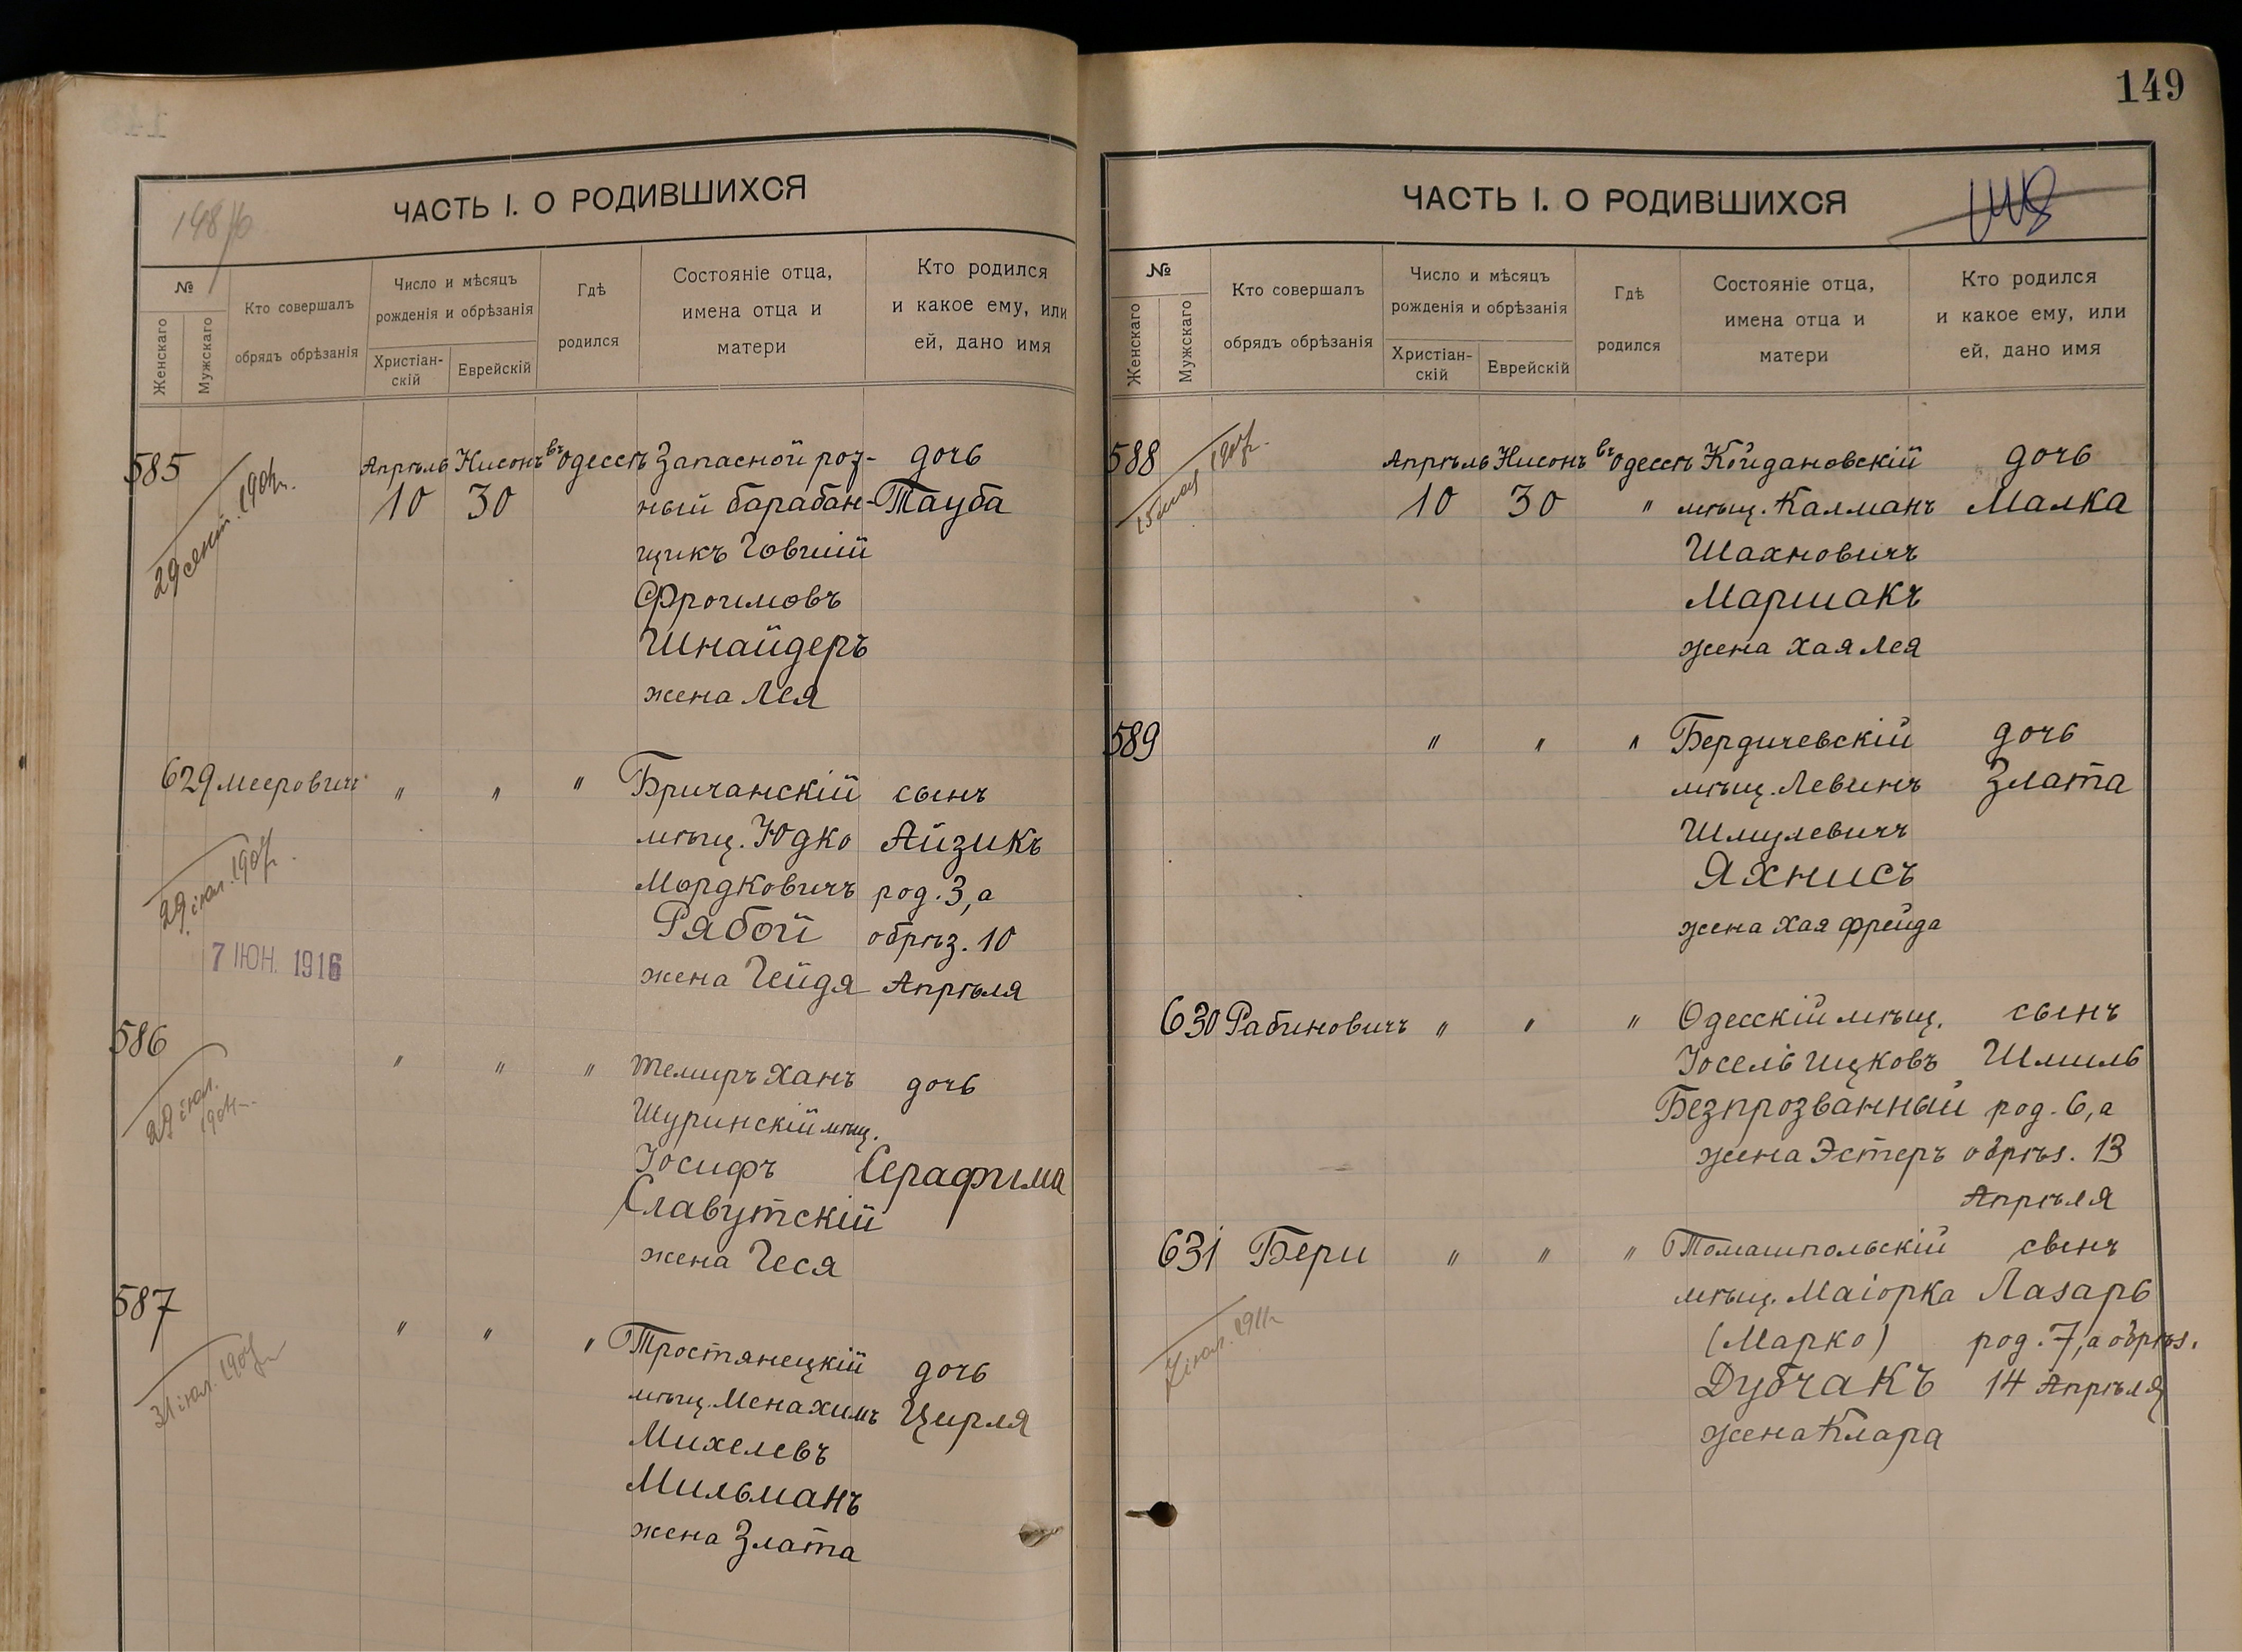 148/б
ЧАСТЬ I. О РОДИВШИХСЯ
№
Женскаго
Мужскаго
Кто совершалъ
обрядъ обрѣзанія
Число и мѣсяцъ
рожденія и обрѣзанія
Христіан-
скій
Еврейскій
Гдѣ
родился
Состояніе отца,
имена отца и
матери
Кто родился
и какое ему, или
ей, дано имя
585 Апрѣль Нисонъ въ Одессѣ Запасной рот- дочь
10 30 ный барабан- Тауба
щикъ Говшій
Фроимовъ
Шнайдеръ
жена Лея
29 сент.
629 Мееровичъ " " " Бричанскій сынъ
мѣщ. Юдко Айзикъ
Мордковичъ род. 3, а
Рябой обрѣз. 10
жена Гейдя Апрѣля
29 іюл. 1907г.
7 ІЮН. 1916
586 " " " Темиръ Ханъ дочь
Шуринскій мѣщ.
Іосифъ Серафима
Славутскій
жена Геся
29 іюл.
587 " " " Тростянецкій дочь
мѣщ. Менахимъ Цирля
Михелевъ
Мильманъ
жена Злата
31 іюл.
149
ЧАСТЬ I. О РОДИВШИХСЯ
№
Женскаго
Мужскаго
Кто совершалъ
обрядъ обрѣзанія
Число и мѣсяцъ
рожденія и обрѣзанія
Христіан-
скій
Еврейскій
Гдѣ
родился
Состояніе отца,
имена отца и
матери
Кто родился
и какое ему, или
ей, дано имя
588 Апрѣль Нисонъ въ Одессѣ Койдановскій дочь
10 30 " мѣщ. Калманъ Малка
Шахновичъ
Маршакъ
жена Хая Лея
15 мая
589 " " " Бердичевскій дочь
мѣщ. Левинъ Злата
Шмулевичъ
Яхнисъ
жена Хая Фрейда
630 Рабиновичъ " " " Одесскій мѣщ. сынъ
Іосель Ицковъ Шмиль
Безпрозванный род. 6, а
жена Эстеръ обрѣз. 13
Апрѣля
631 Бери " " " Томашпольскій сынъ
мѣщ. Маіорка Лазарь
(Марко) род. 7, а обрѣз.
Дубчакъ 14 Апрѣля
жена Клара
іюл. 1911г.